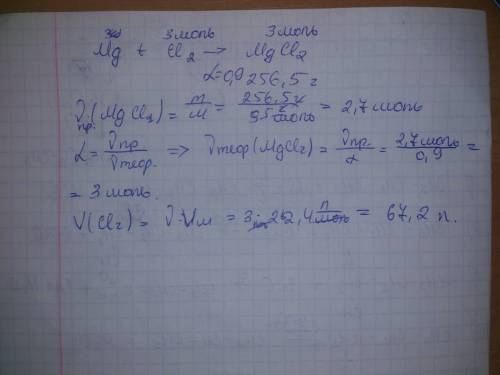 3 моль 3 моль
Mg + Cl2 → MgCl2
α=0,9 256,5 г
νпр.(MgCl2) = m/M = 256,5 г/95 г/моль = 2,7 моль
α = νпр/νтеор. => νтеор(MgCl2) = νпр./α = 2,7 моль/0,9 =
= 3 моль.
V(Cl2) = ν·Vм = 3 · 22,4 л/моль = 67,2 л.